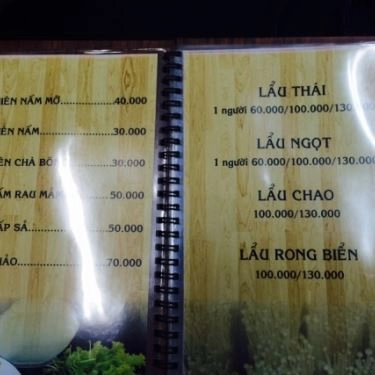 IÊN NẤM MỠ..............40.000
ÊN NẤM..................30.000
ÊN CHÀ BÔNG..........30.000
ẤM RAU MẮM..........50.000
ẤP SẢ....................50.000
HẢO.....................70.000
LẨU THÁI
1 người 60.000/100.000/130.000
LẨU NGỌT
1 người 60.000/100.000/130.000
LẨU CHAO
100.000/130.000
LẨU RONG BIỂN
100.000/130.000